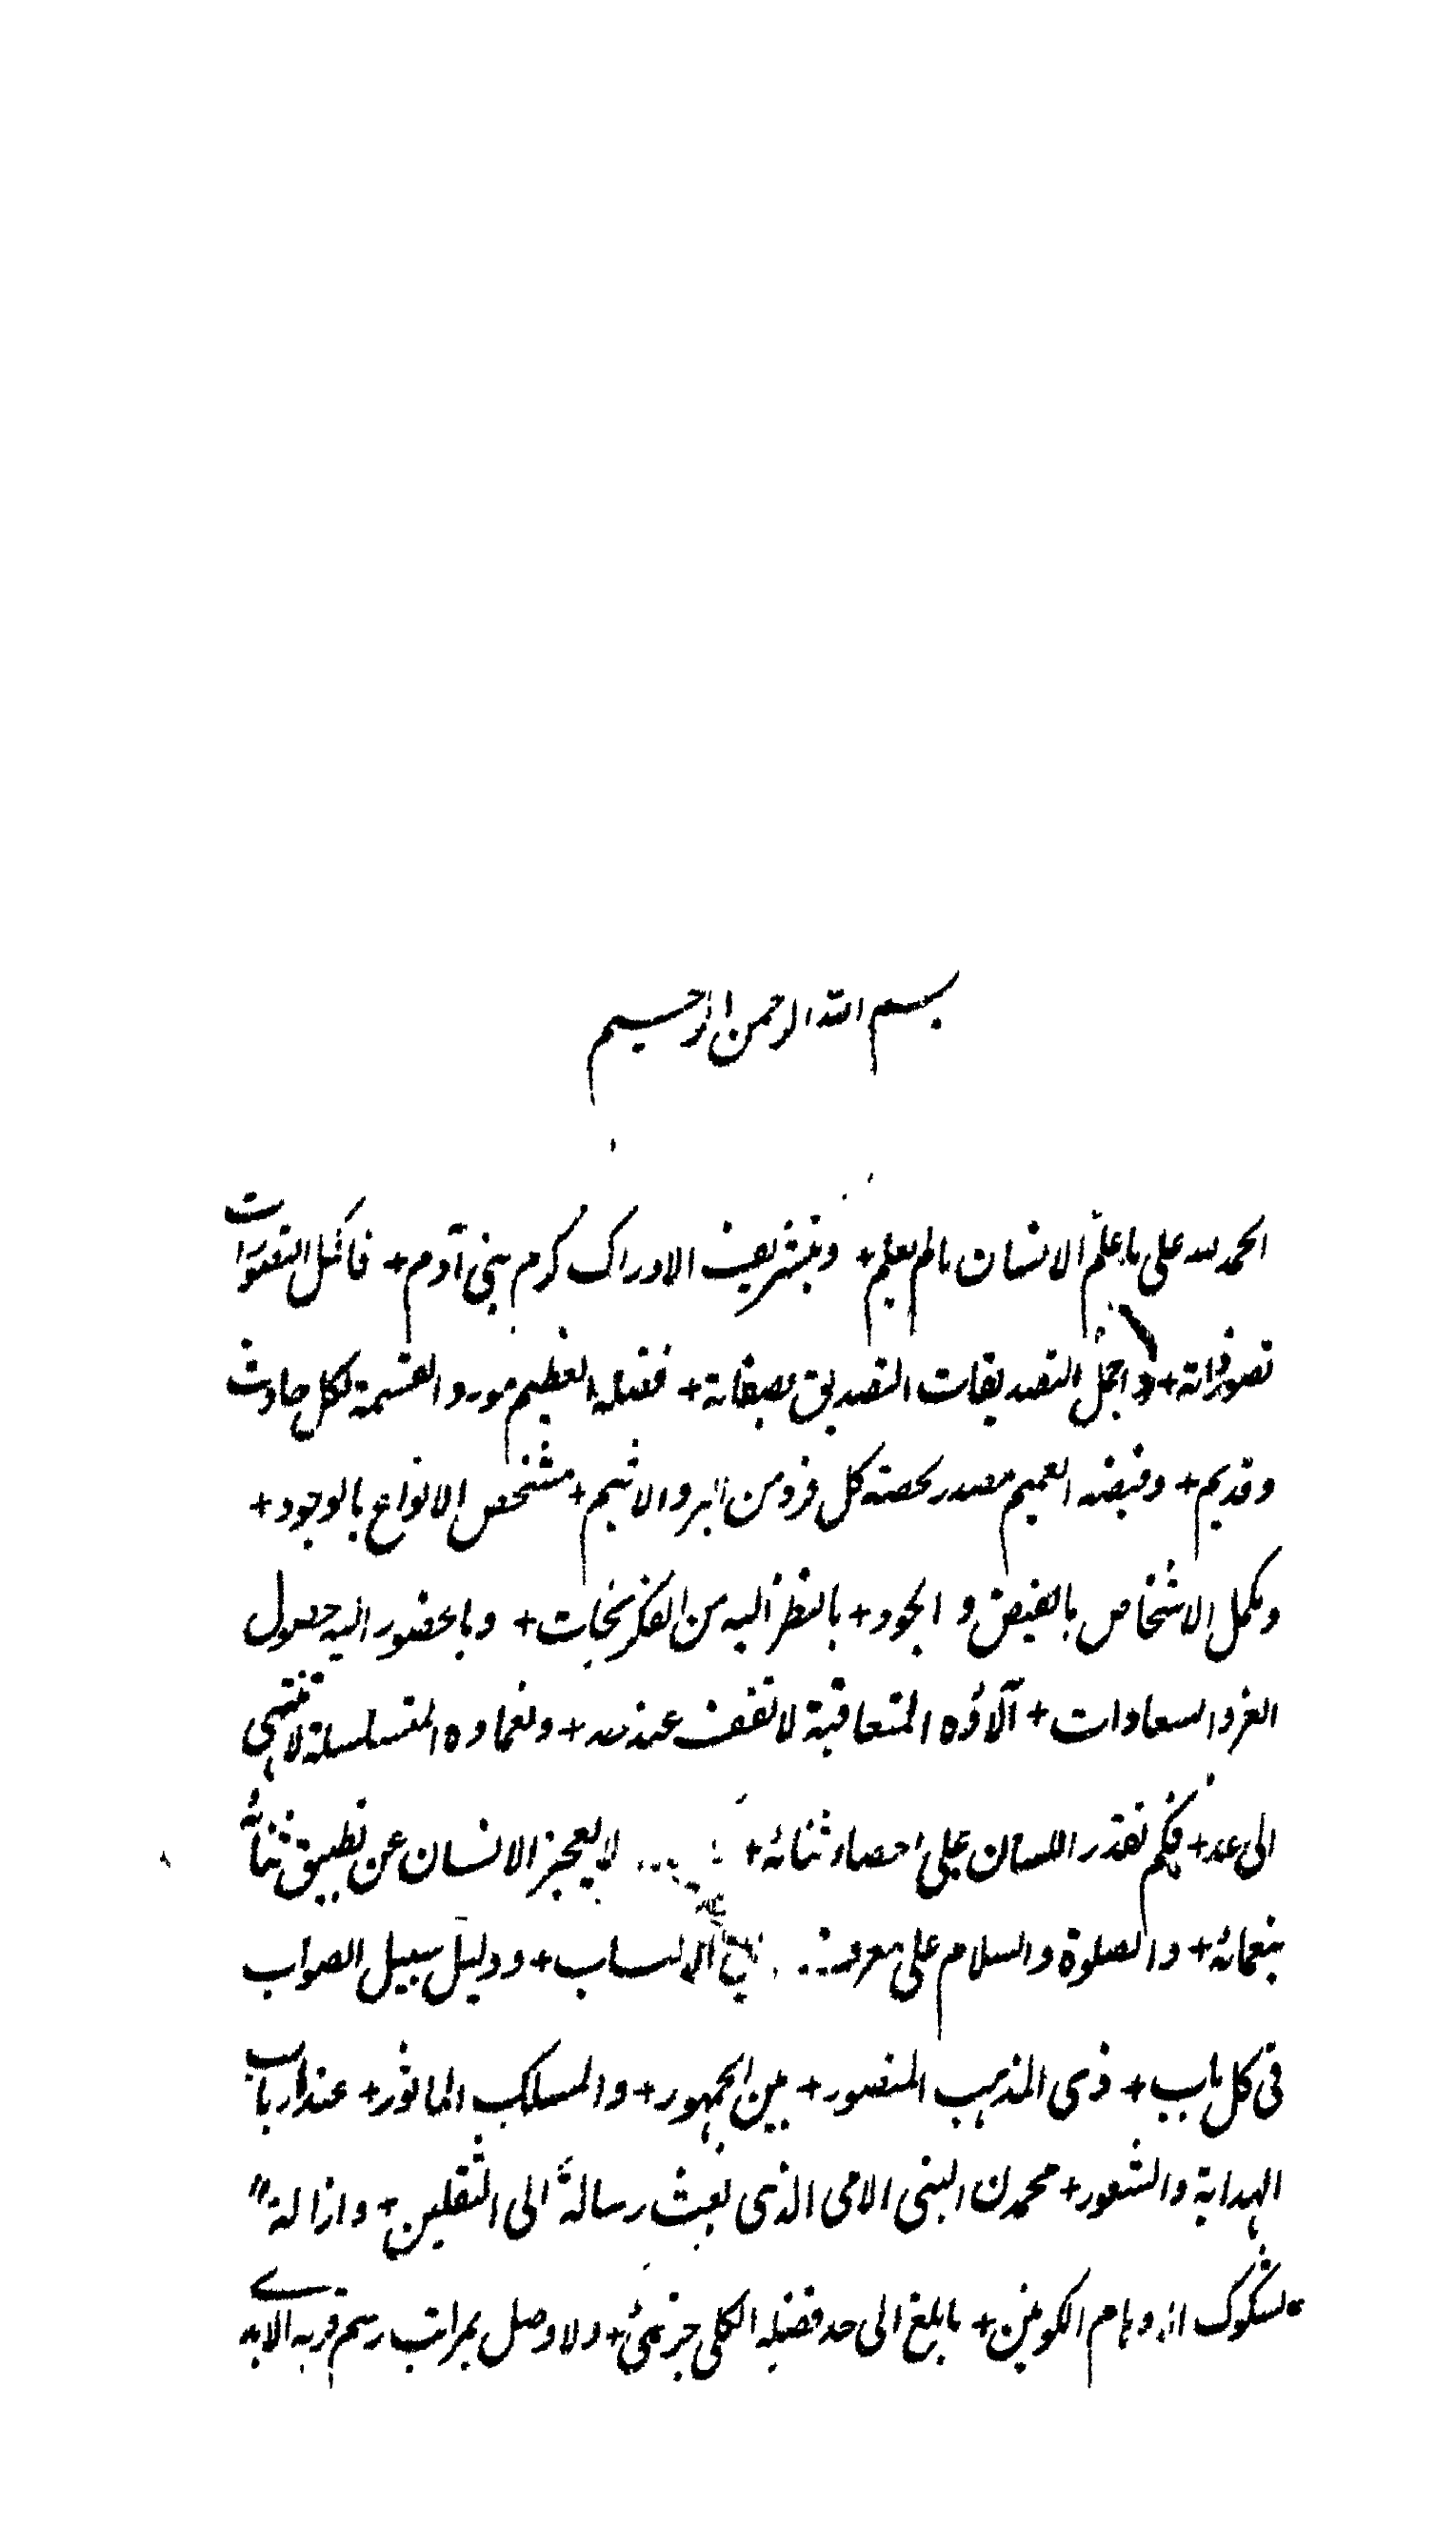 بسم الله الرحمن الرحيم
الحمد لله على ما علّم الانسان ما لم يعلم + وبتشريف الادراك كرم بنى آدم + فاكمل التصورات
تصور ذاته + و اجمل التصديقات التصديق بصفاته + ففضله العظيم مورد القسمة لكل حادث
وقديم + وفيضه العميم مصدر لحصته كل فرد من البر والاثيم + مشخص الانواع بالوجود +
ومكمل الاشخاص بالفيض و الجود + بالنظر اليه من الفكر نجات + وبالحضور اليه حصول
العز والسعادات + آلاؤه المتعاقبة لا تقف عند حد + ونعماوه المتسلسلة لا تنتهى
الى عد + فكم تقدر اللسان على احصاء ثنائه + لا يعجز الانسان عن تطبيق ثنائه
بنعمائه + والصلوة والسلام على معرف الانساب + ودليل سبيل الصواب
فى كل باب + ذى المذهب المنصور + بين الجمهور + والمسلك الماثور + عند ارباب
الهداية والشعور + محمدن النبى الامى الذى بعث رسالة الى الثقلين + وازالة
لشكوك اوهام الكونين + ما بلغ الى حد فضيله الكلى جزئى + ولا وصل بمراتب رسم قربه الابدى